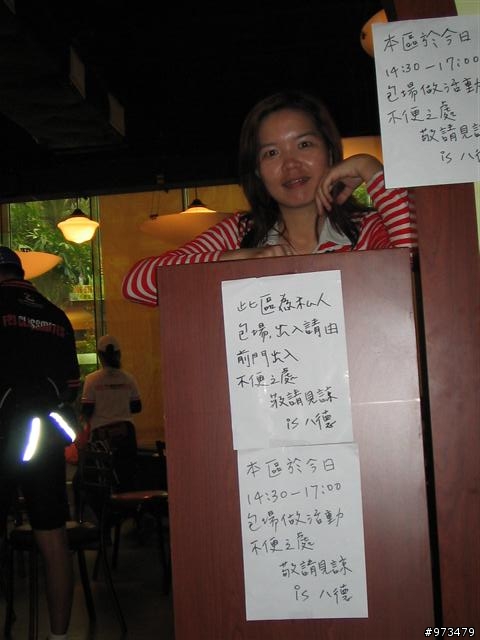 本區於今日
14:30-17:00
包場做活動
不便之處
敬請見諒
is 八德
此區為私人
包場,出入請由
前門出入
不便之處
敬請見諒
is 八德
本區於今日
14:30-17:00
包場做活動
不便之處
敬請見諒
is 八德
#973479